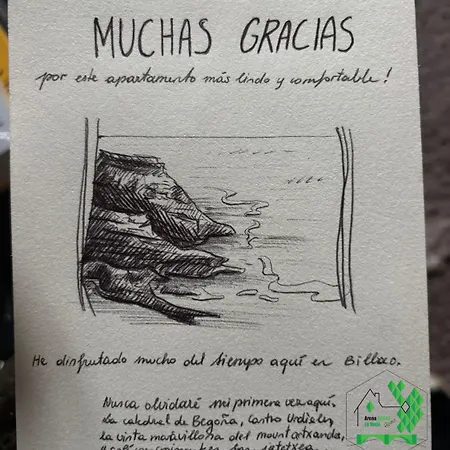 MUCHAS GRACIAS
por este apartamento más lindo y comfortable!
He disfrutado mucho del tiempo aquí en Bilbao.
Nunca olvidaré mi primera vez aquí.
La catedral de Begoña, Castro Urdiales,
la vista maravillosa del mount artxanda,